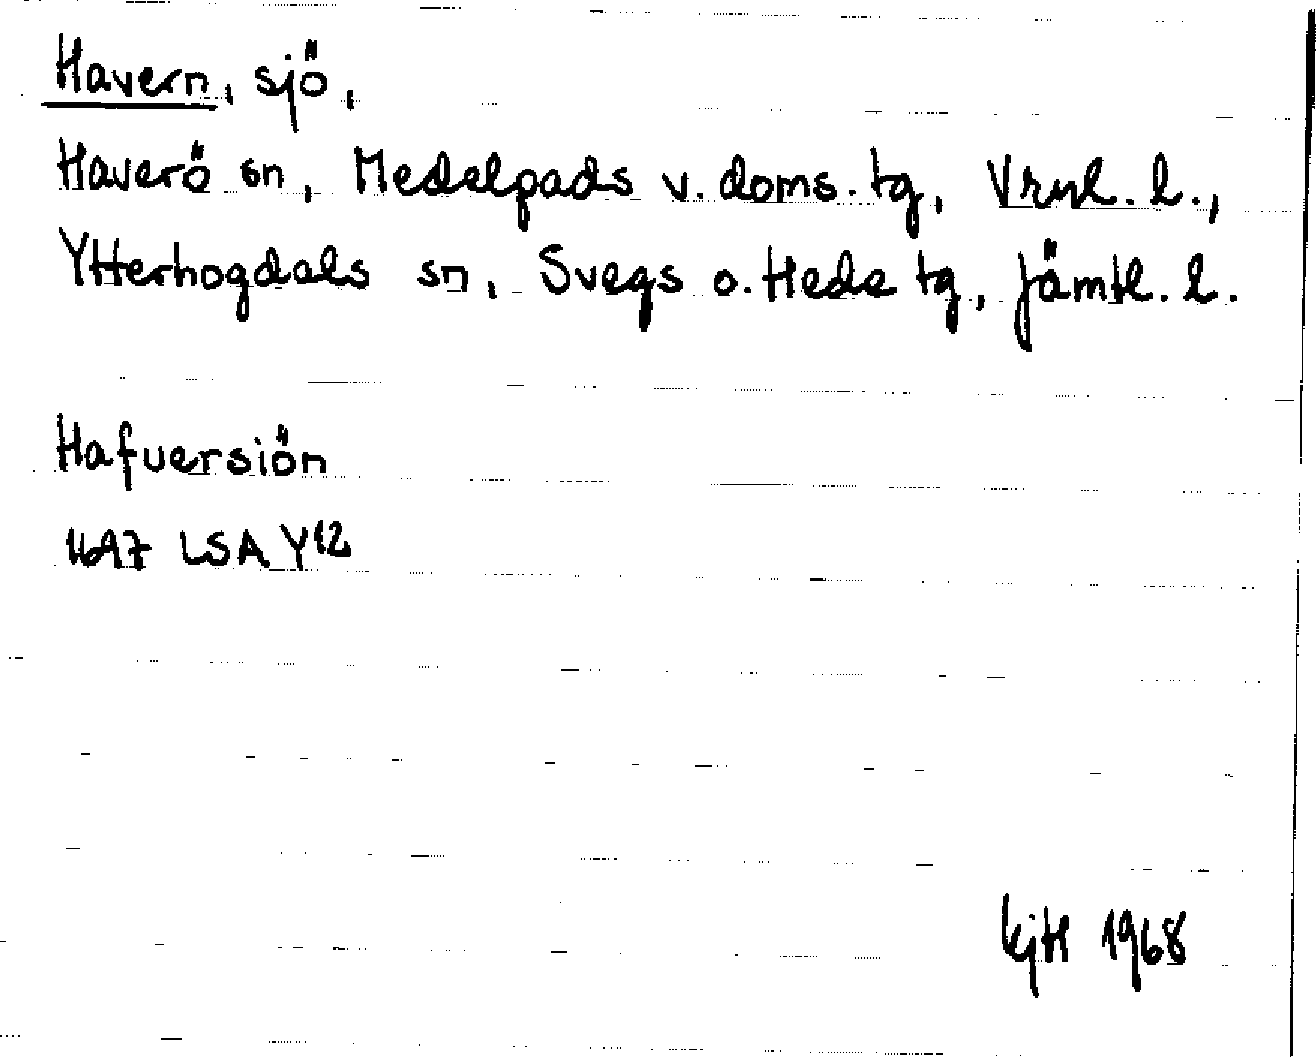 Havern, sjö,
Haverö sn, Medelpads v. doms. tg, Vrnl. l.,
Ytterhogdals sn, Svegs o. Hede tg, Jämtl. l.
Hafversiön
1697 LSA Y12
1968